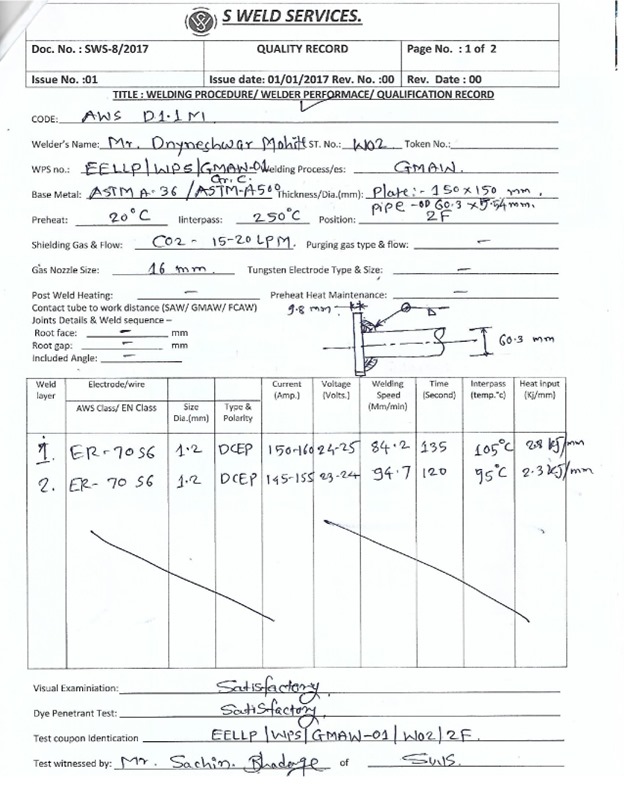 S WELD SERVICES.
Doc. No. : SWS-8/2017 QUALITY RECORD Page No. : 1 of 2
Issue No. :01 Issue date: 01/01/2017 Rev. No. :00 Rev. Date : 00
TITLE : WELDING PROCEDURE/ WELDER PERFORMACE/ QUALIFICATION RECORD
CODE: AWS D1.1 M
Welder's Name: Mr. Dnyneshwar Mohite ST. No.: W02 Token No.:
WPS no.: EELLP|WPS|GMAW-01 Welding Process/es: GMAW.
Base Metal: ASTM A-36 /ASTM-A500 Gr.C. Thickness/Dia.(mm): Plate:- 150 x 150 mm.
pipe -OD 60.3 x 5.54mm.
Preheat: 20°C Iinterpass: 250°C Position: 2F
Shielding Gas & Flow: CO2 - 15-20 LPM. Purging gas type & flow: —
Gas Nozzle Size: 16 mm. Tungsten Electrode Type & Size: —
Post Weld Heating: — Preheat Heat Maintenance: —
Contact tube to work distance (SAW/ GMAW/ FCAW) 9.8 mm
Joints Details & Weld sequence –
Root face: — mm
Root gap: — mm
Included Angle: —
60.3 mm
Weld layer Electrode/wire Current (Amp.) Voltage (Volts.) Welding Speed (Mm/min) Time (Second) Interpass (temp.°c) Heat input (Kj/mm)
AWS Class/ EN Class Size Dia.(mm) Type & Polarity
1. ER-70 S6 1.2 DCEP 150-160 24-25 84.2 135 105°C 2.8 KJ/mm
2. ER- 70 S6 1.2 DCEP 145-155 23-24 94.7 120 95°C 2.3 KJ/mm
Visual Examiniation: Satisfactory
Dye Penetrant Test: Satisfactory
Test coupon Identication EELLP|WPS|GMAW-01|W02|2F.
Test witnessed by: Mr. Sachin. of SWS.